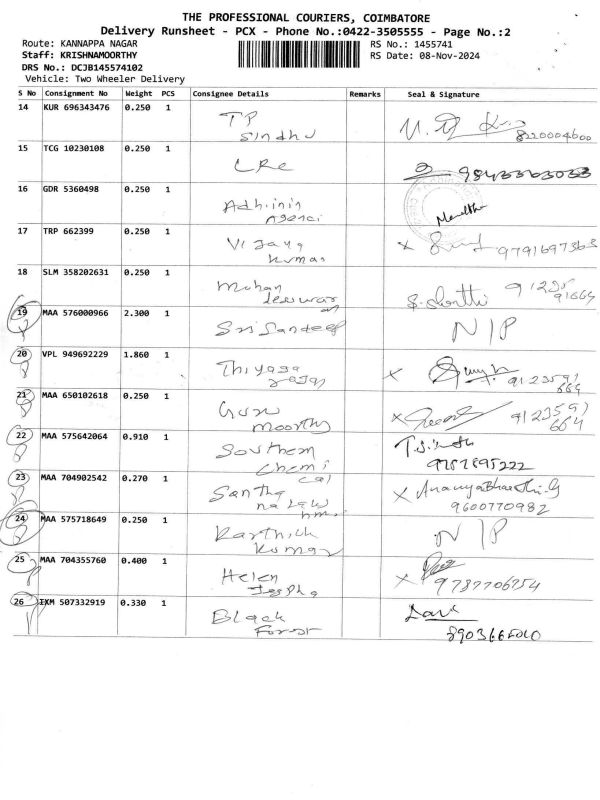 THE PROFESSIONAL COURIERS, COIMBATORE
Delivery Runsheet - PCX - Phone No.:0422-3505555 - Page No.:2
Route: KANNAPPA NAGAR
Staff: KRISHNAMOORTHY
DRS No.: DCJB145574102
Vehicle: Two Wheeler Delivery
RS No.: 1455741
RS Date: 08-Nov-2024
S No Consignment No Weight PCS Consignee Details Remarks Seal & Signature
14 KUR 696343476 0.250 1 TP
Sindhu 8220004600
15 TCG 10230108 0.250 1 LRC 9843363033
16 GDR 5360498 0.250 1 Adhinin
Agenci
17 TRP 662399 0.250 1 Vijaya
Kumar 9791697363
18 SLM 358202631 0.250 1 Mohan
91235
91664
19 MAA 576000966 2.300 1 Sri Sandeep N/P
20 VPL 949692229 1.860 1 Thiyaga
rajan 9123591
664
21 MAA 650102618 0.250 1 Guru
moorthy 9123591
664
22 MAA 575642064 0.910 1 Southern
Chemi
cal 9787895222
23 MAA 704902542 0.270 1 Santha
AnanyaBharathi.G
9600770982
24 MAA 575718649 0.250 1 Karthick
Kumar N/P
25 MAA 704355760 0.400 1 Helen
9787706754
26 IXM 507332919 0.330 1 Black
Forest